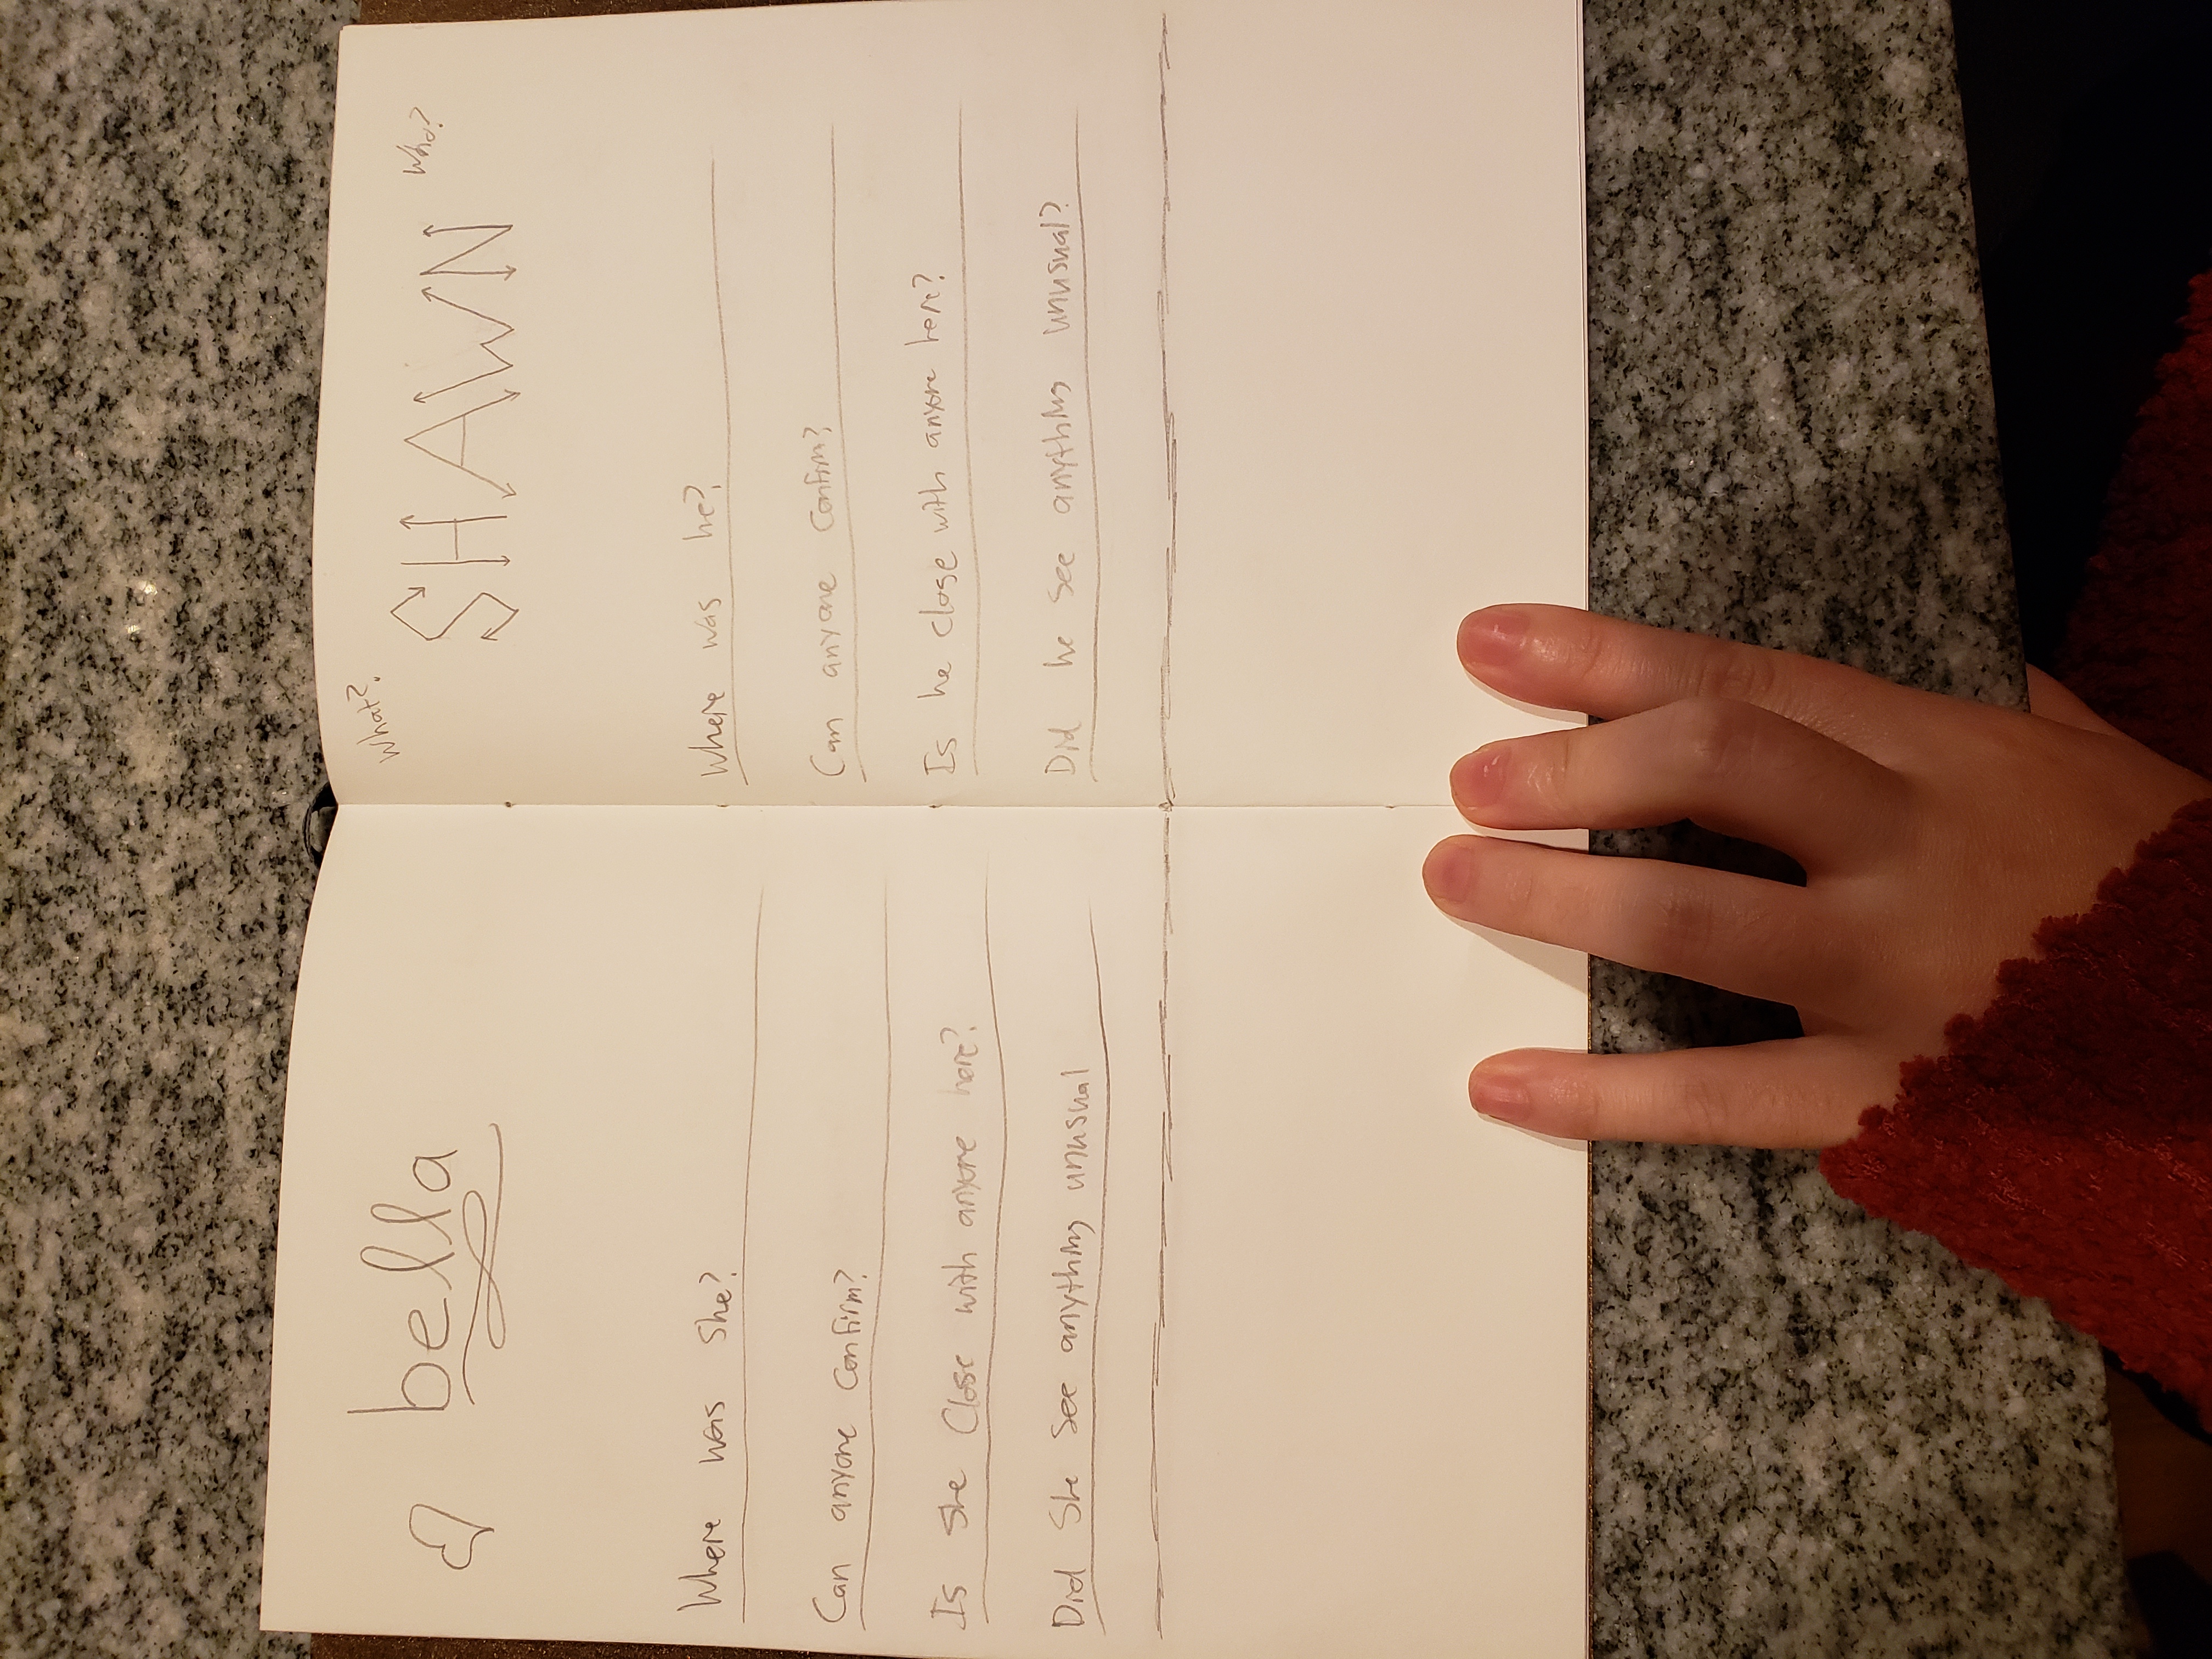 bella
Where was she?
Can anyone confirm?
Is she close with anyone here?
Did she see anything unusual
What?
SHAWN
Who?
Where was he?
Can anyone confirm?
Is he close with anyone here?
Did he see anything unusual?